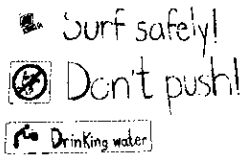 Surf safely!
Don't push!
Drinking water